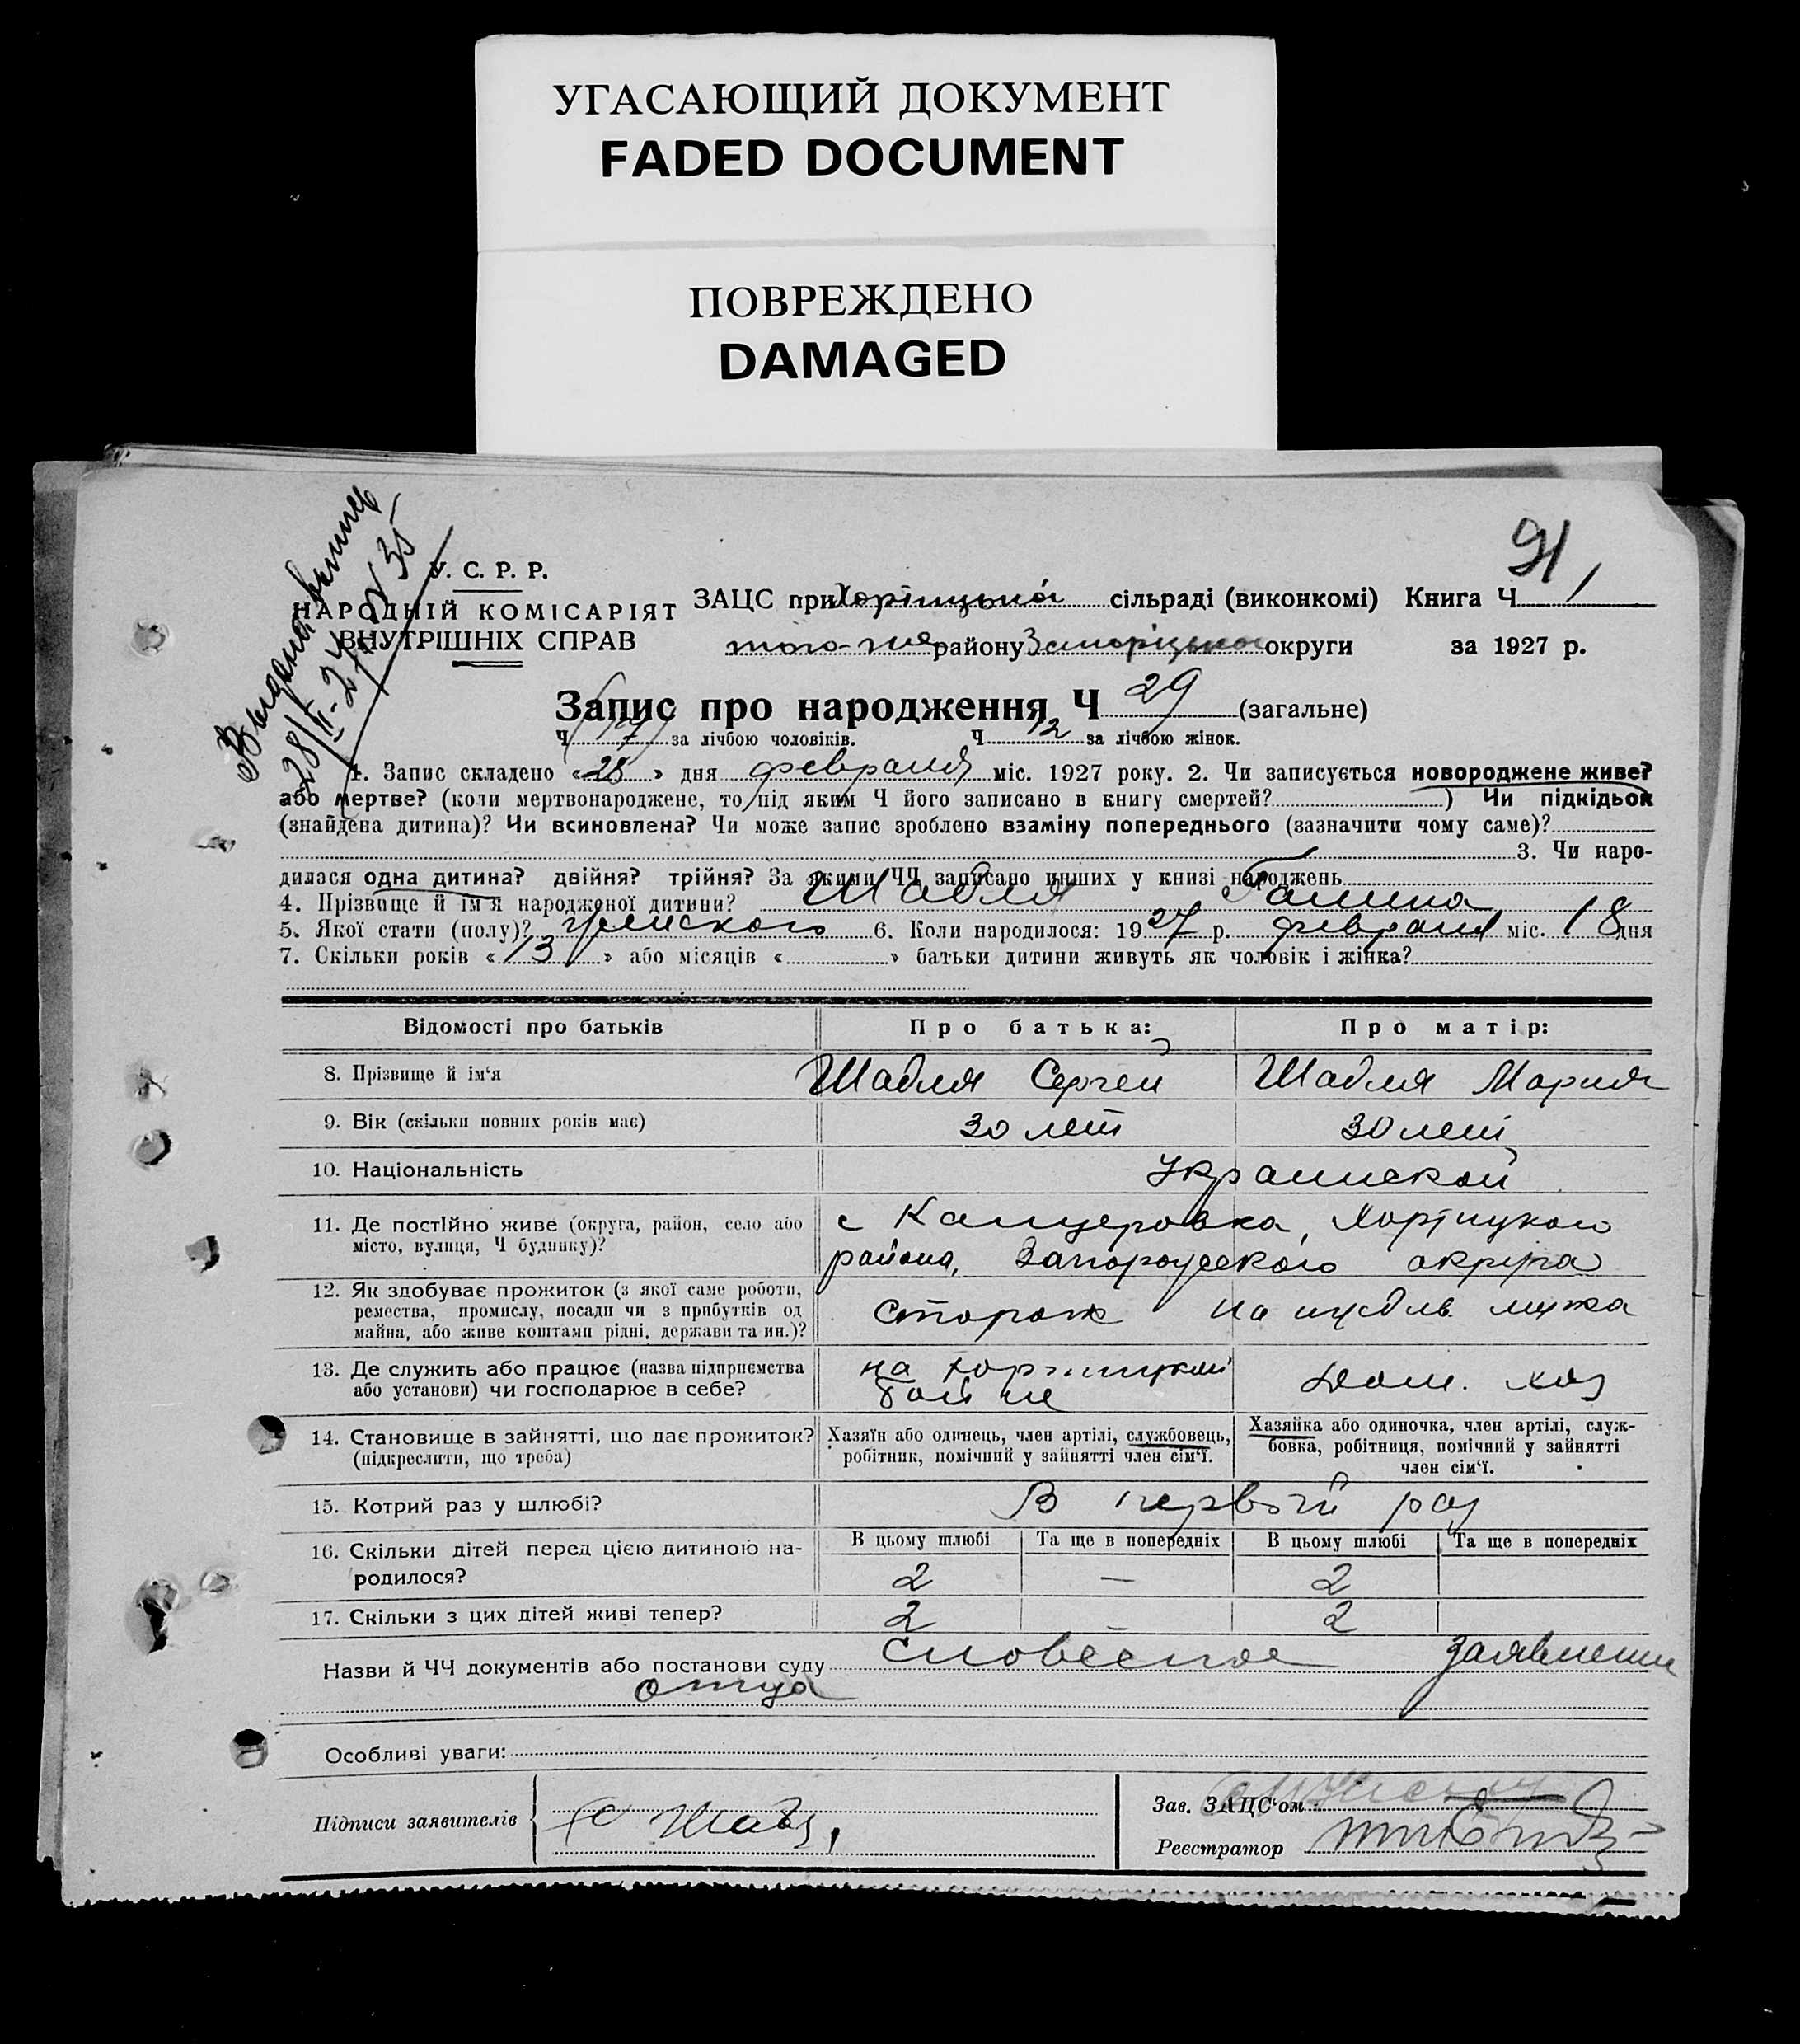 УГАСАЮЩИЙ ДОКУМЕНТ
FADED DOCUMENT
ПОВРЕЖДЕНО
DAMAGED
91
28/II-27 N 35
У. С. Р. Р.
НАРОДНІЙ КОМІСАРІЯТ
ВНУТРІШНІХ СПРАВ
ЗАЦС при Хортицькой сільраді (виконкомі) Книга Ч 1
того-же району Запоріцькое округи за 1927 р.
Запис про народження Ч 29 (загальне)
Ч 17 за лічбою чоловіків. Ч 12 за лічбою жінок.
1. Запис складено «28» дня февраля міс. 1927 року. 2. Чи записується новороджене живе?
або мертве? (коли мертвонароджене, то під яким Ч його записано в книгу смертей? ) Чи підкідьок
(знайдена дитина)? Чи всиновлена? Чи може запис зроблено взаміну попереднього (зазначити чому саме)?
3. Чи наро-
дилася одна дитина? двійня? трійня? За якими ЧЧ записано инших у книзі народжень
4. Прізвище й ім'я народженої дитини? Шабля Галина
5. Якої стати (полу)? женского 6. Коли народилося: 1927 р. февраля міс. 18 дня
7. Скільки років «13» або місяців « » батьки дитини живуть як чоловік і жінка?
Відомості про батьків Про батька: Про матір:
8. Прізвище й ім'я Шабля Сергей Шабля Мария
9. Вік (скільки повних років має) 30 лет 30 лет
10. Національність Украинской
11. Де постІйно живе (округа, район, село або с Канцеровка, Хортицкого
місто, вулиця, Ч будинку)? района, Запорожского округа
12. Як здобуває прожиток (з якої саме роботи,
ремества, промислу, посади чи з прибутків од сторож на иждив. мужа
майна, або живе коштами рідні, держави та ин.)?
13. Де служить або працює (назва підприємства на Хортицкой Дом. хоз
або установи) чи господарює в себе? бойне
14. Становище в зайнятті, що дає прожиток? Хазяїн або одинець, член артілі, службовець, Хазяйка або одиночка, член артілі, служ-
(підкреслити, що треба) робітник, помічний у зайнятті член сім'ї. бовка, робітниця, помічний у зайнятті
член сім'ї.
15. Котрий раз у шлюбі? В первый раз
16. Скільки дітей перед цією дитиною на- В цьому шлюбі Та ще в попередніх В цьому шлюбі Та ще в попередніх
родилося? 2 — 2
17. Скільки з цих дітей живі тепер? 2 2
Назви й ЧЧ документів або постанови суду Словесное заявление
отца
Особливі уваги:
Підписи заявителів С Шабля
Зав. ЗАЦС'ом
Реєстратор